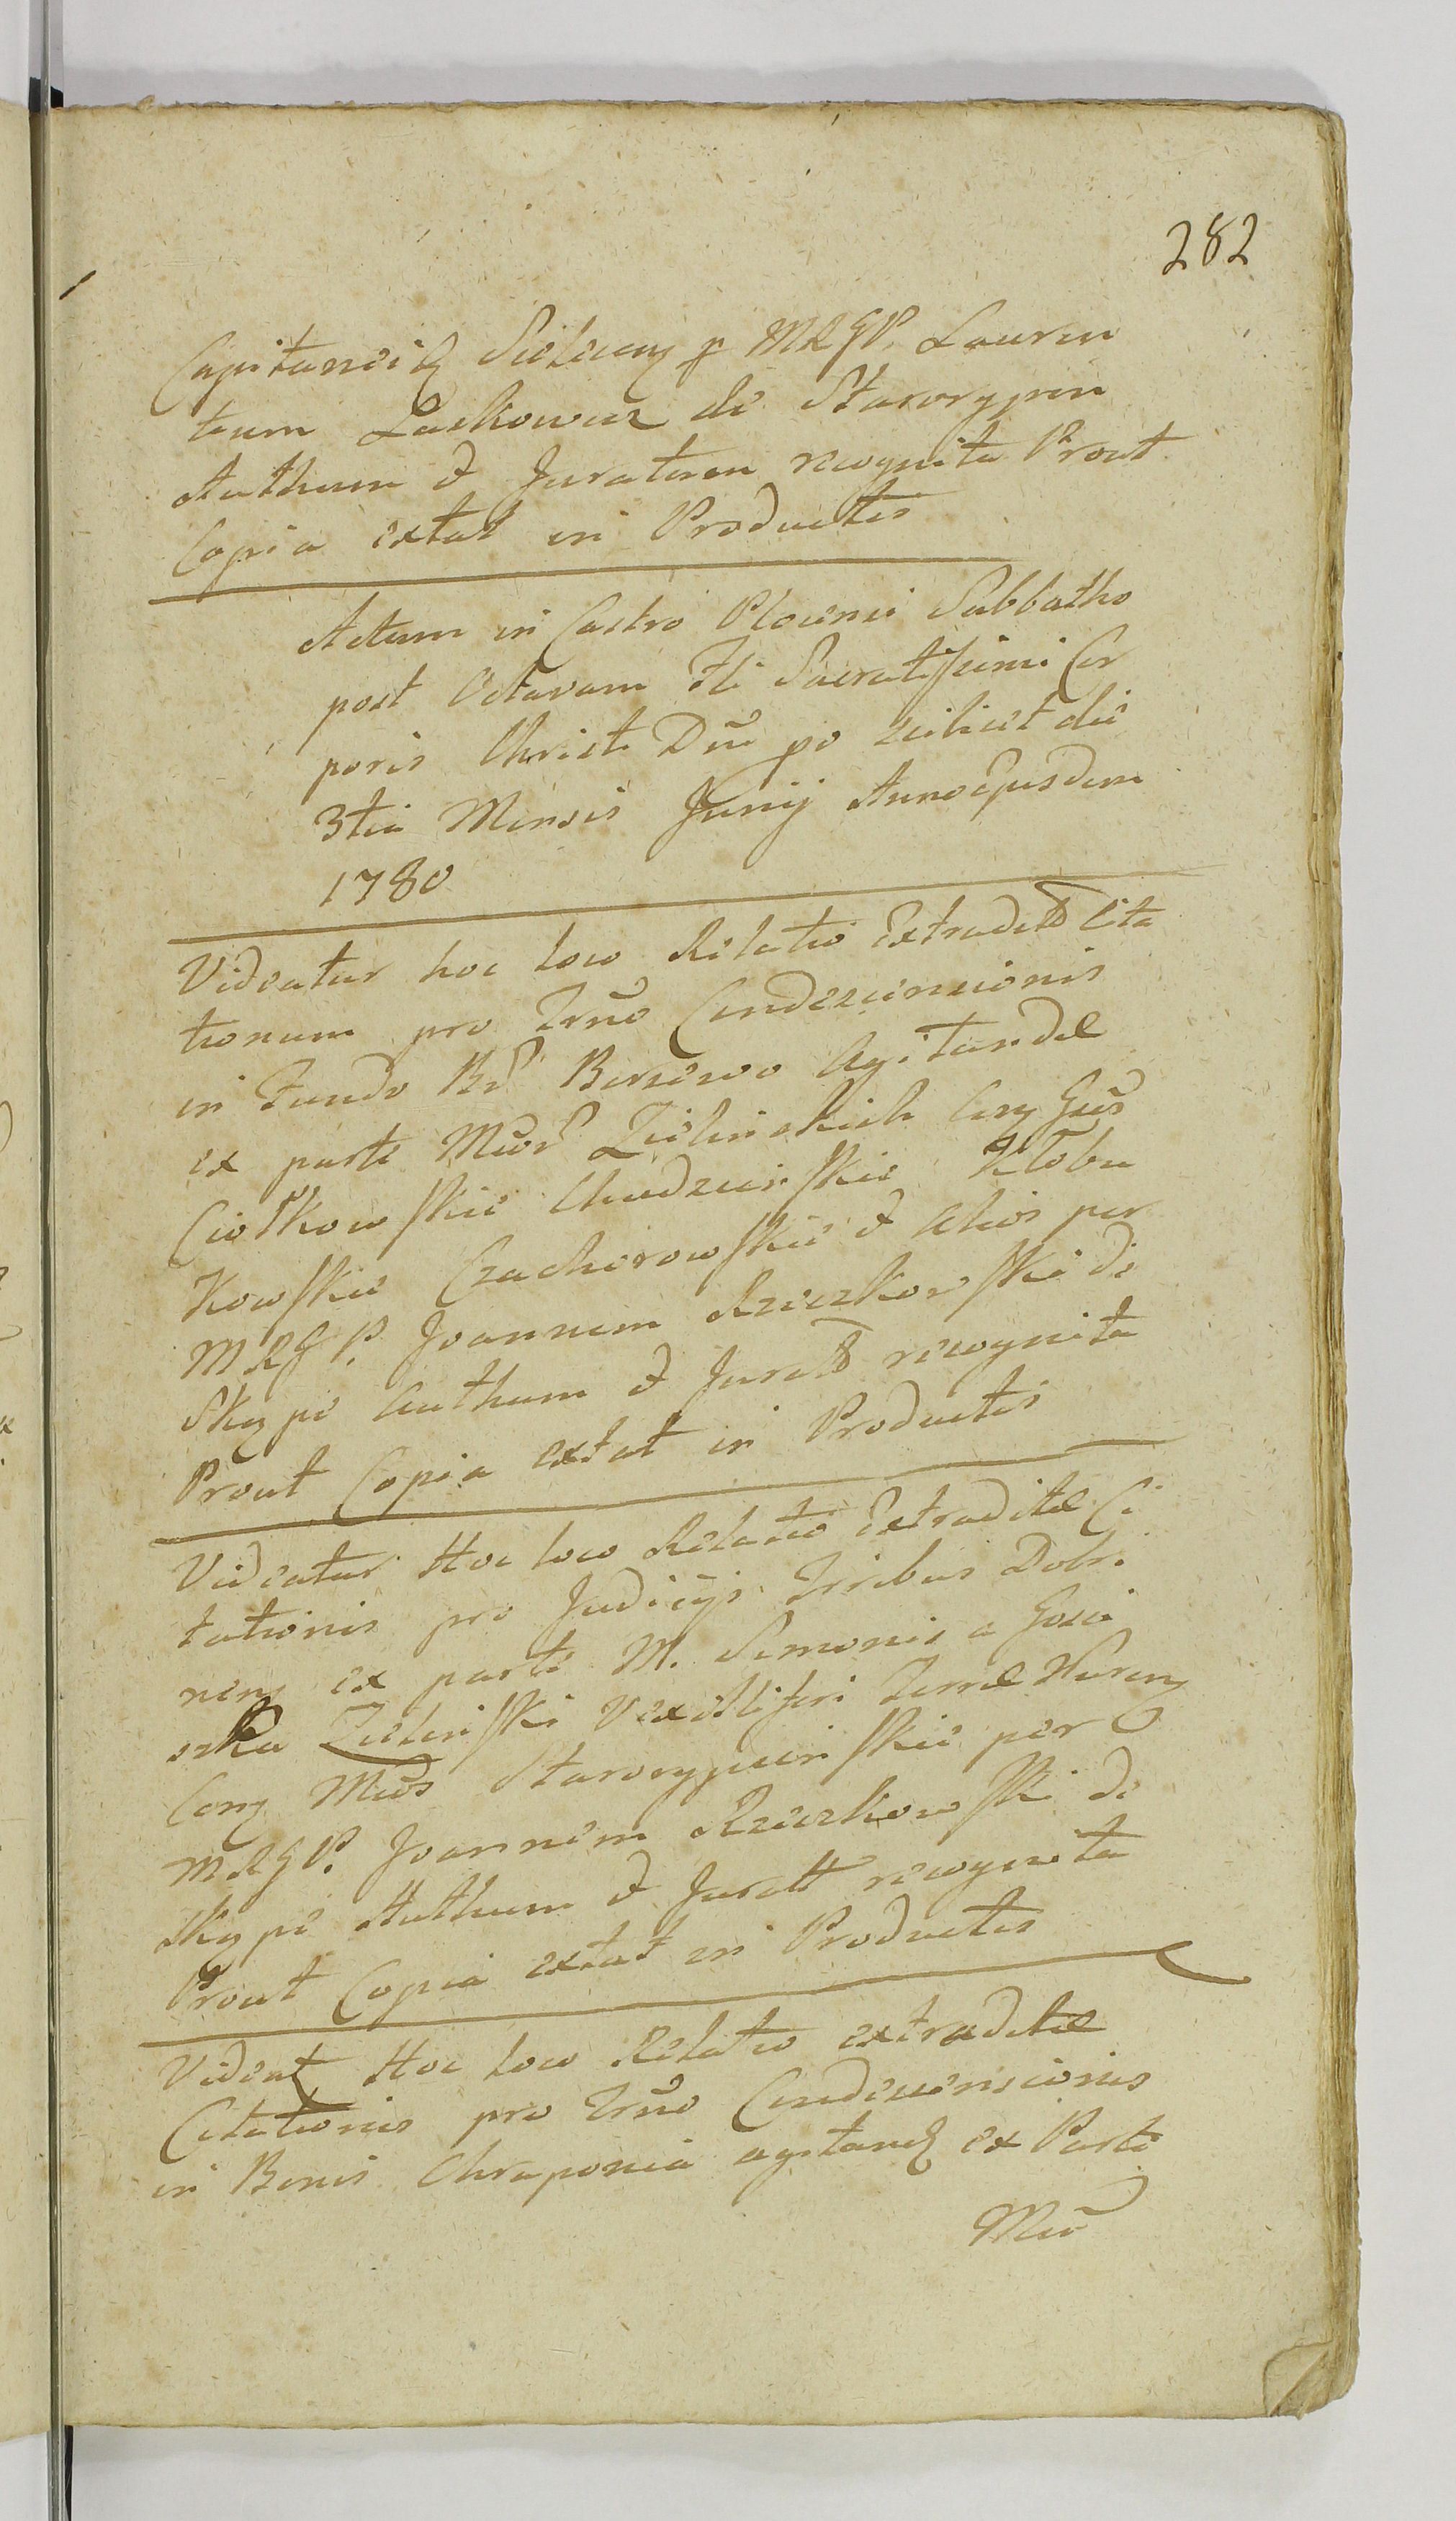 282
Capitanei Sielucen p MRGP. Lauren
tium Laskowicz de Starorypin
Authum & Juratum recognita Prout
Copia extat in Productis
Actum in Castro Plocensi Sabbatho
post Octavam Fti Sacratissimi Cor
poris Christi Dñi po scilicet die
3tia Mensis Junij Anno ejusdem
1780
Videatur hoc loco Relatio Extradit Cita
tionum pro Trño Condescensionis
in Fundo Br Borzewo Agitandæ
ex parte Mcor Zielinskich Cony Gños
Ciołkowskie Chudzinskie Kłobu
kowskie Czachorowskie & Alios per
MRGP. Joannem Rzeczkowski de
Skępe Authum & Jurat recognita
Prout Copia extat in Productis
Videatur Hoc loco Relatio Extraditæ Ci
tationis pro Judicijs Trribus Dobri
nens ex parte M. Simonis a Gosci
szka Zielinski Vexilliferi Terræ Wyszn
Cony Mcos Starorypinskie per
MRGP. Joannem Rzeczkowski de
Skępe Authum & Juratt recognita
Prout Copia extat in Productis
Videat Hoc loco Relatio extraditæ
Citationis pro Trño Condescensionis
in Bonis Chraponia agitand ex Parte
Mcor